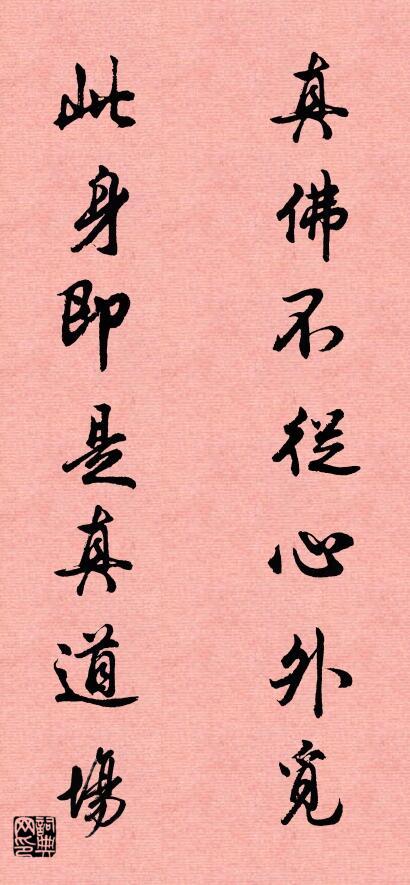 真佛不從心外覓
此身即是真道場
詞典網印